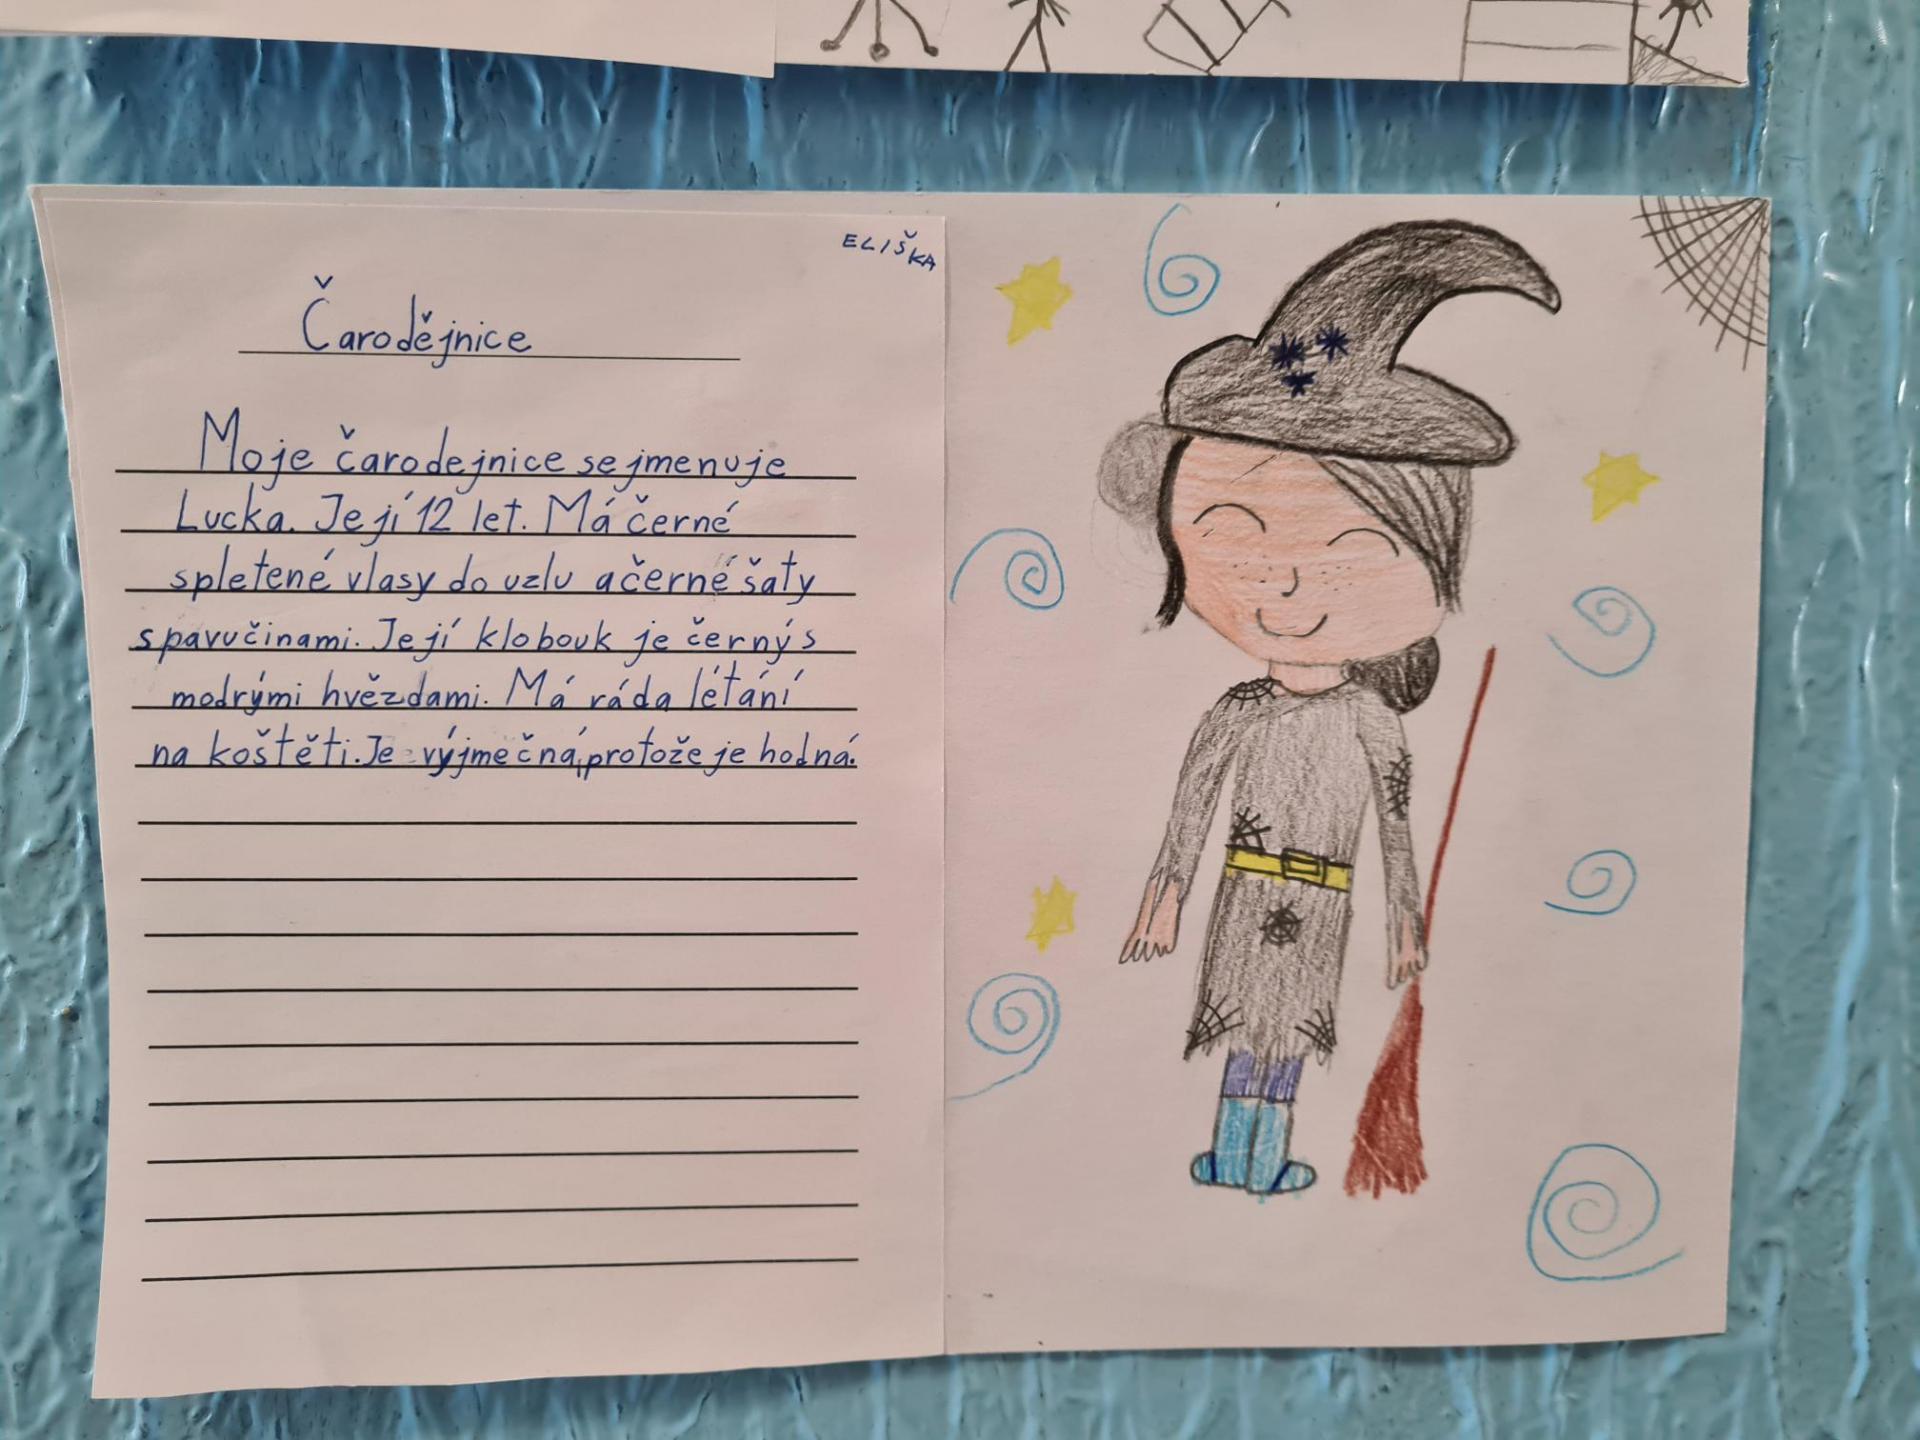 ELIŠKA
Čarodějnice
Moje čarodejnice se jmenuje
Lucka. Její 12 let. Má černé
spletené vlasy do uzlu a černé šaty
s pavučinami. Její klobouk je černý s
modrými hvězdami. Má ráda létání
na koštěti. Je výjmečná, protože je hodná.